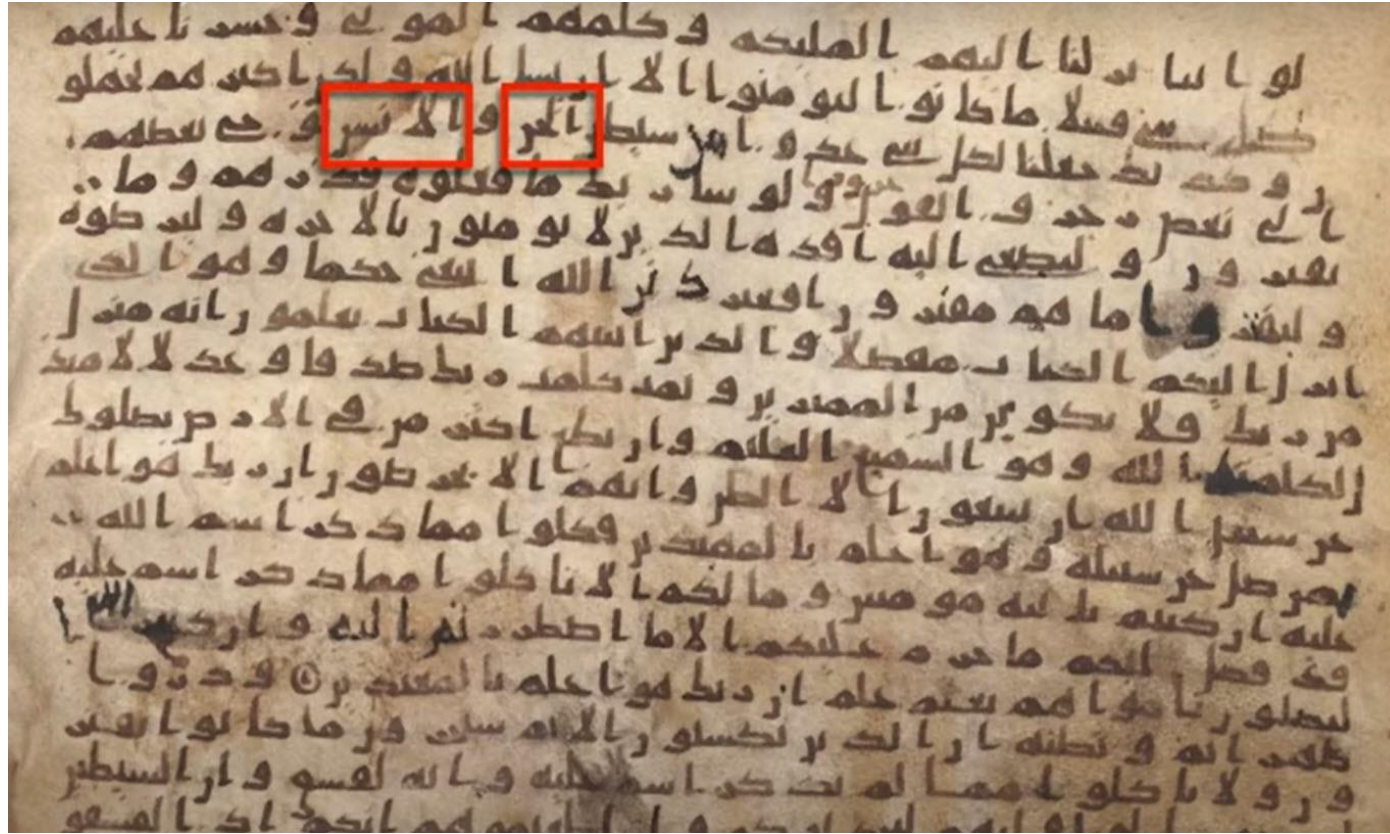 لو اننا نزلنا اليهم الملئكه وكلمهم الموتى وحشرنا عليهم
كل شى قبلا ما كانوا ليومنوا الا ان يشا الله ولكن اكثرهم يجهلو
ن وكذلك جعلنا لكل نبى عدوا شيطين الجن والانس يوحى بعضهم
الى بعض زخرف القول ولو شا ربك ما فعلوه فذرهم وما
يفترون ولتصغى اليه افده الذين لا يومنون بالاخره وليرضوه
وليقترفوا ما هم مقترفون افغير الله ابتغى حكما وهو الذى
انزل اليكم الكتاب مفصلا والذين اتينهم الكتاب يعلمون انه منزل
من ربك فلا تكونن من الممترين وتمت كلمت ربك صدقا وعدلا لا مبد
ل لكلمته وهو السميع العليم وان تطع اكثر من فى الارض يضلوك
عن سبيل الله ان يتبعون الا الظن وان هم الا يخرصون ان ربك هو اعلم
من يضل عن سبيله وهو اعلم بالمهتدين فكلوا مما ذكر اسم الله
عليه ان كنتم بايته مومنين وما لكم الا تاكلوا مما ذكر اسم عليه
وقد فصل لكم ما حرم عليكم الا ما اضطررتم اليه وان كثيرا
ليضلون باهواهم بغير علم ان ربك هو اعلم بالمعتدين وذروا
ظهر الاثم وبطنه ان الذين يكسبون الاثم سيجزون بما كانوا يقتر
فون ولا تاكلوا مما لم يذكر اسم عليه وانه لفسق وان الشيطين